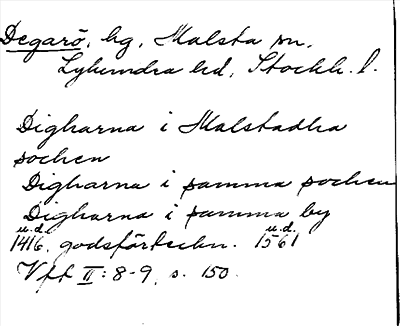 Degarö, hg, Malsta sn.
Lyhundra hd, Stockh. l.
Digharna i Malstadha
sochen
Digharna i samma sochen
Digharna i samma by
u.d. u.d.
1416. godsförteckn. 1561
Vff II: 8-9, s. 150.